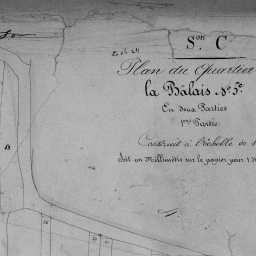 S.on C
Plan du Quartier
la Bâlais. N° 5e
En deux Parties
1ère Partie
Construit à l'échelle de
Soit un Millimètre sur le papier pour 1.